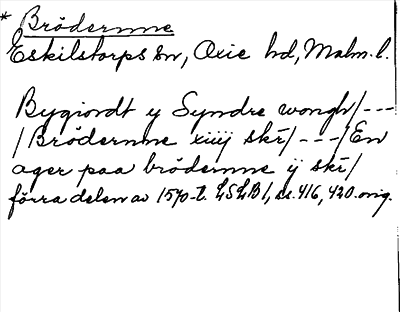 * Brödernne
Eskilstorps sn, Oxie hd, Malm. l.
Bygiordt y Syndre wongh/---
/Brödernne xiiij skr/---/En
ager paa brödernne ij skr/
förra delen av 1570-t. LSLB 1, ss. 416, 420. orig.